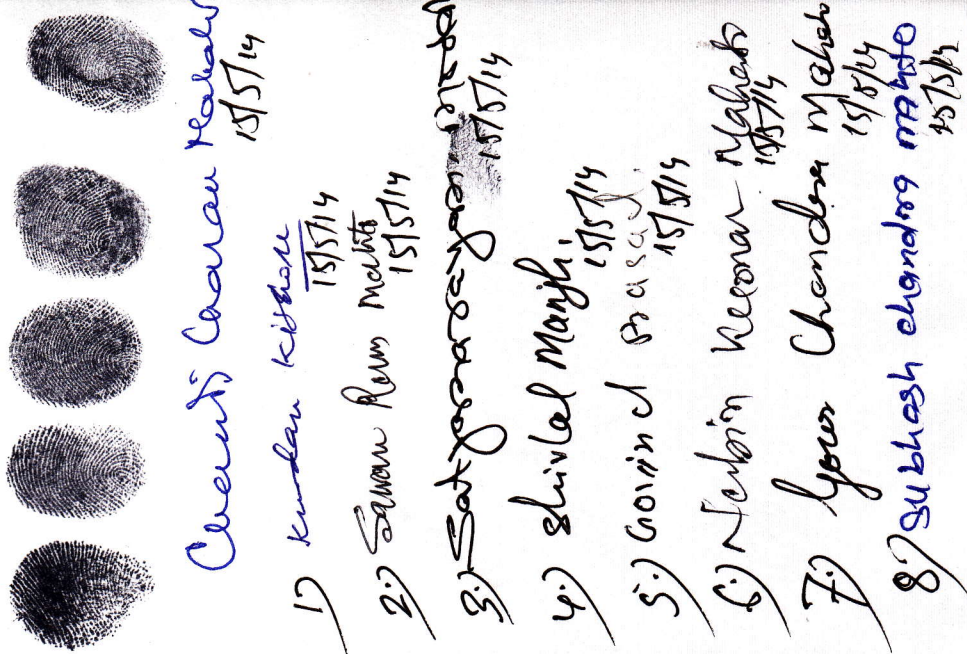 Chandi Charan Mahato
15/5/14
1) Kundan Kishore
15/5/14
2.) Sawan Ram Mahto
15/5/14
3.) Satyanarayan
15/5/14
4.) Shivlal Manjhi
15/5/14
5.) Govind Prasad.
15/5/14
6.) Nalin Kumar Mahato
15/5/14
7.) Gour Chandra Mahato
15/5/14
8.) Subhash chandra mahato
15/5/14